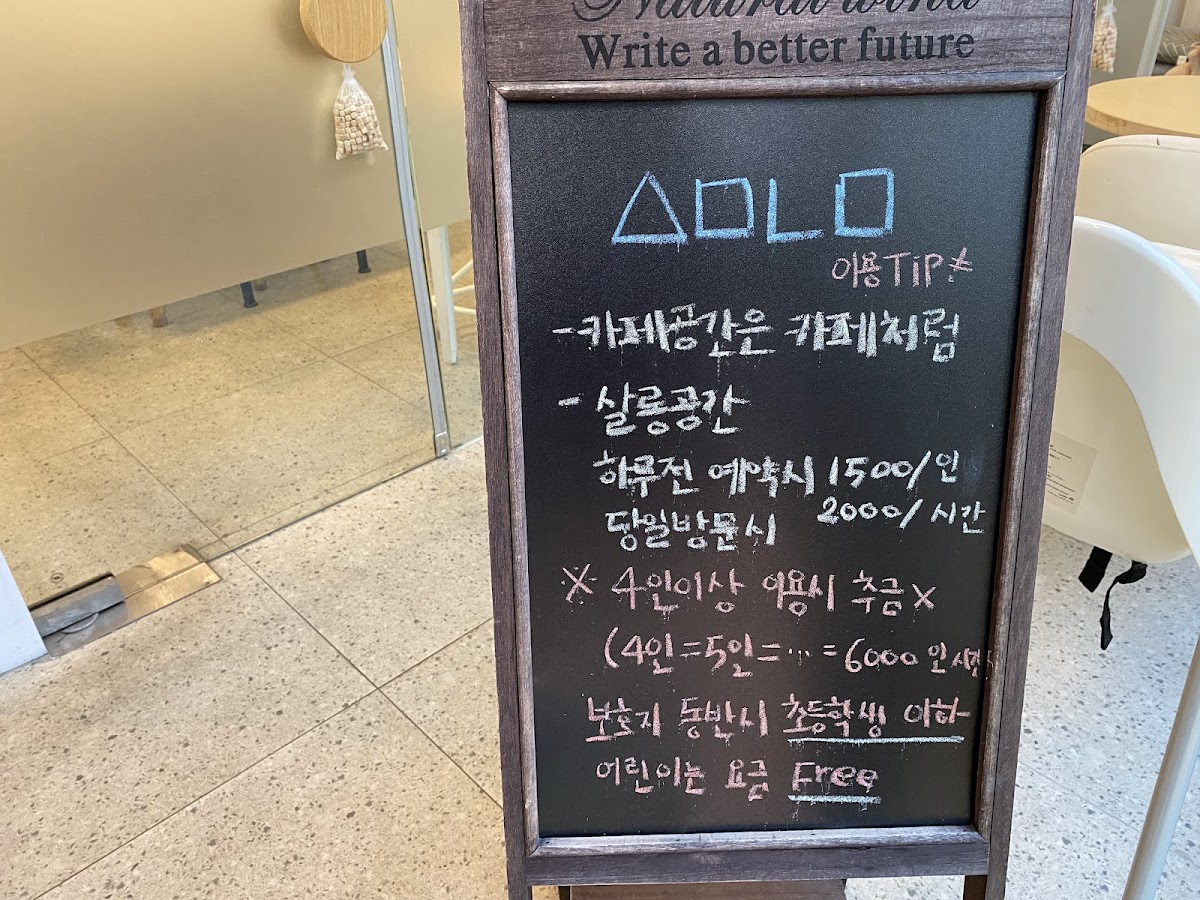 Natural wind
Write a better future
△ㅁㄴㅁ
이용 TiP*
-카페공간은 카페처럼
- 살롱공간
하루전 예약시 1500/인
당일방문시 2000/시간
※ 4인이상 이용시 추금x
(4인=5인=…=6000 인시간
보호자 동반시 초등학생 이하
어린이는 요금 Free